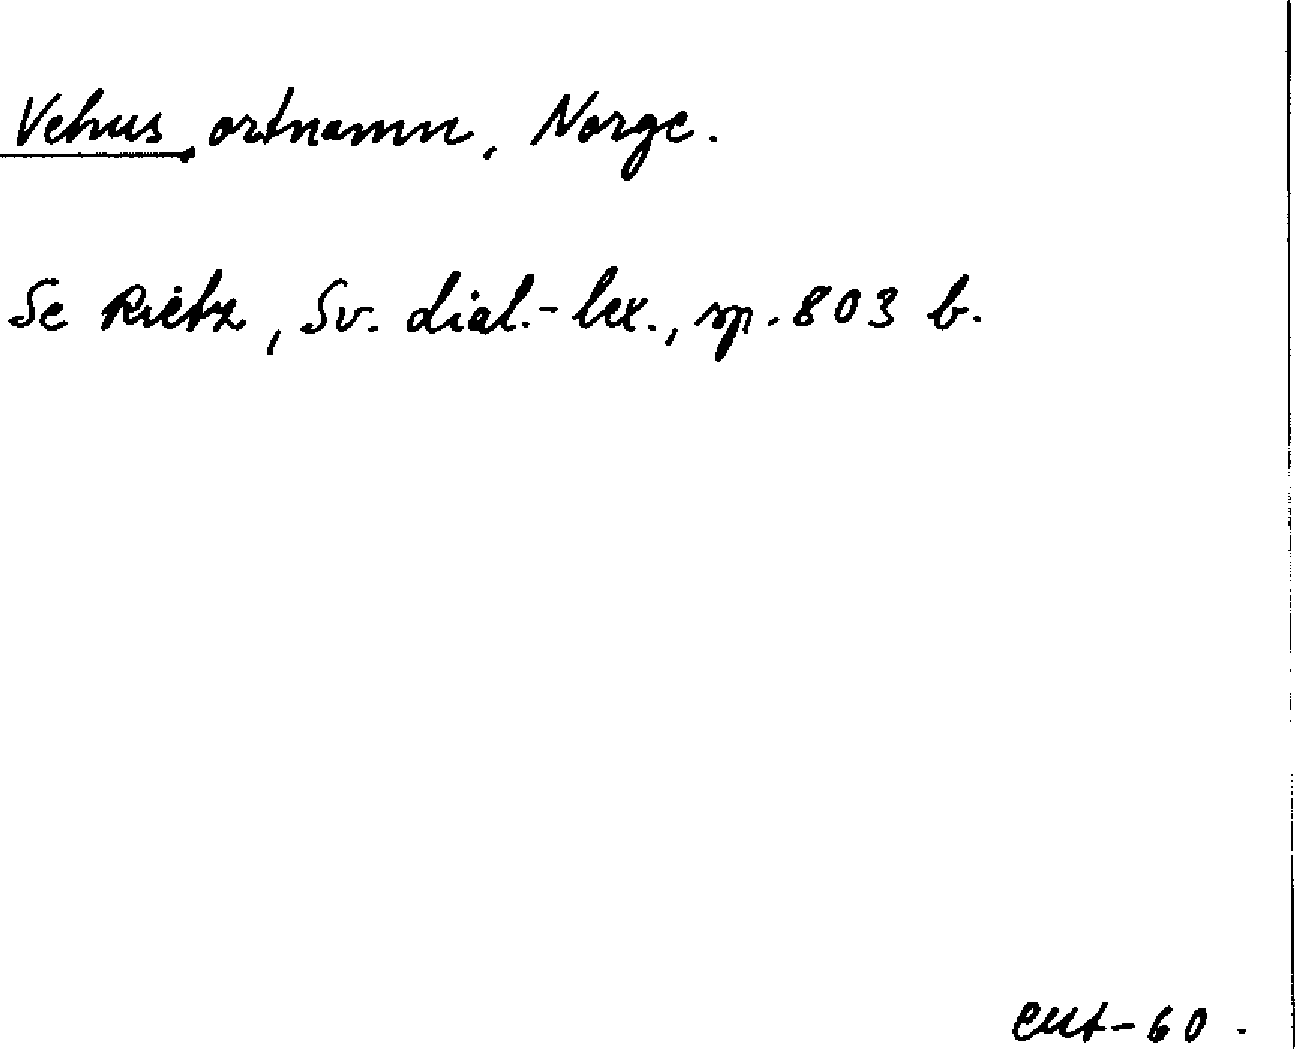 Vehus, ortnamn, Norge.
Se Rietz, Sv. dial.-lex., sp. 803 b.
-60.